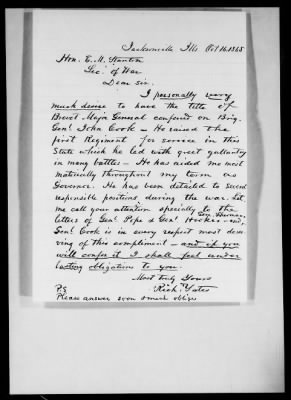 Jacksonville Ills Oct 16. 1865
Hon. E. M. Stanton
Sec. of War.
Dear Sir.
I personally very
much desire to have the title of
Brevet Major General confered on Brig.
Genl John Cook – He raised the
first Regiment for service in this
State which he led with great gallantry
in many battles – He has aided me most
materially throughout my term as
Governor. He has been detailed to several
responsible positions during the war. Let
me call your attention specially to the
letters of Genl Pope & Genl Hooker
Genl Cook is in every respect most deser
ving of this compliment – and if you
will confer it I shall feel under
lasting obligation to you.
Most truly Yours
Rich. Yates
P.S
Please answer soon & much oblige